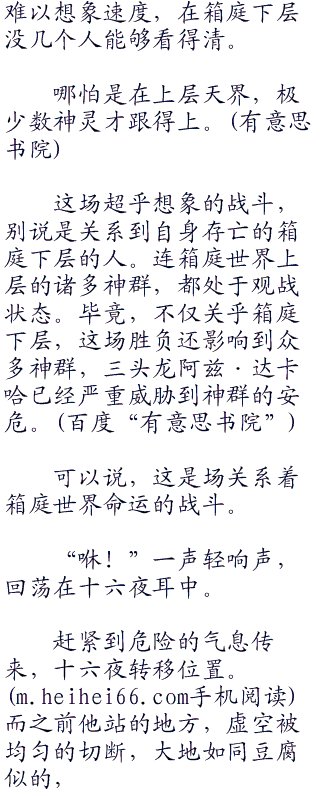 难以想象速度，在箱庭下层
没几个人能够看得清。
哪怕是在上层天界，极
少数神灵才跟得上。(有意思
书院)
这场超乎想象的战斗，
别说是关系到自身存亡的箱
庭下层的人。连箱庭世界上
层的诸多神群，都处于观战
状态。毕竟，不仅关乎箱庭
下层，这场胜负还影响到众
多神群，三头龙阿兹·达卡
哈已经严重威胁到神群的安
危。(百度“有意思书院”)
可以说，这是场关系着
箱庭世界命运的战斗。
“咻！”一声轻响声，
回荡在十六夜耳中。
赶紧到危险的气息传
来，十六夜转移位置。
(m.heihei66.com手机阅读)
而之前他站的地方，虚空被
均匀的切断，大地如同豆腐
似的，